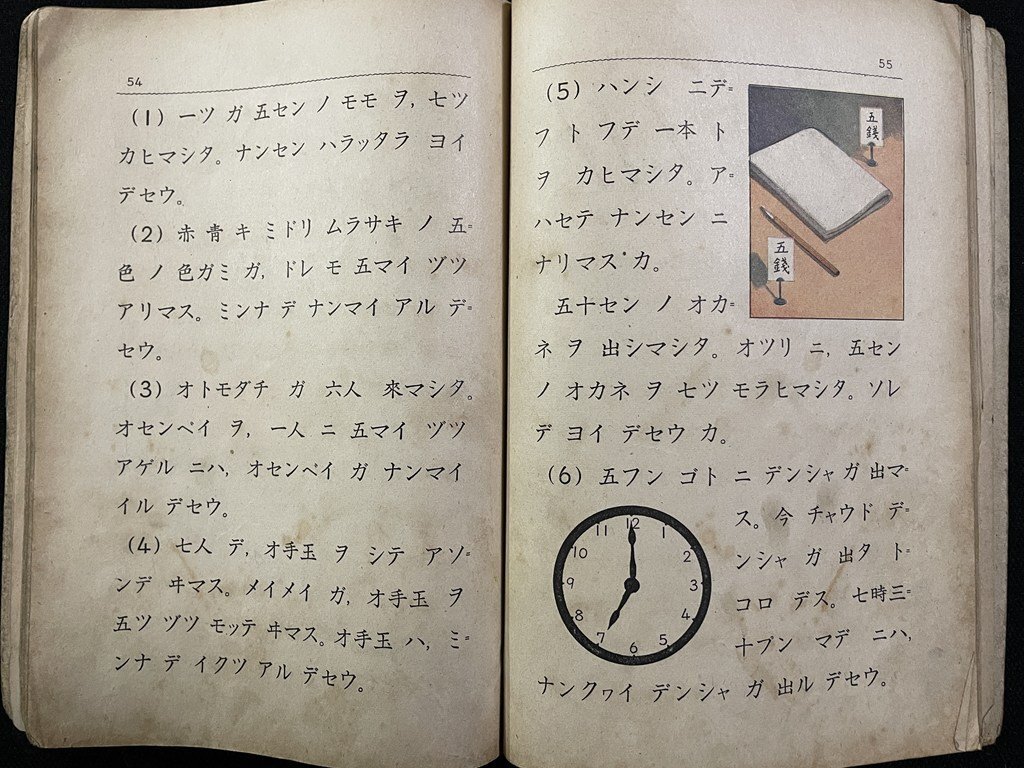 54
(1) 一ツ ガ 五セン ノ モモ ヲ, 七ツ
カヒマシタ。ナンセン ハラッタラ ヨイ
デセウ。
(2) 赤 青 キ ミドリ ムラサキ ノ 五
色 ノ 色ガミ ガ, ドレ モ 五マイ ヅツ
アリマス。ミンナ デ ナンマイ アル デ=
セウ。
(3) オトモダチ ガ 六人 來マシタ。
オセンベイ ヲ, 一人 ニ 五マイ ヅツ
アゲル ニハ, オセンベイ ガ ナンマイ
イル デセウ。
(4) 七人 デ, オ手玉 ヲ シテ アソ=
ンデ ヰマス。メイメイ ガ, オ手玉 ヲ
五ツ ヅツ モッテ ヰマス。オ手玉 ハ, ミ=
ンナ デ イクツ アル デセウ。
55
(5) ハンシ 二デ=
フ ト フデ 一本 ト
ヲ カヒマシタ。ア=
ハセテ ナンセン ニ
ナリマス カ。
五十セン ノ オカ=
ネ ヲ 出シマシタ。オツリ ニ, 五セン
ノ オカネ ヲ 七ツ モラヒマシタ。ソレ
デ ヨイ デセウ カ。
五錢
五錢
(6) 五フン ゴト ニ デンシャ ガ 出マ=
ス。今 チャウド デ=
ンシャ ガ 出タ ト=
コロ デス。七時三=
十プン マデ ニハ,
ナンクヮイ デンシャ ガ 出ル デセウ。
12
1
2
3
4
5
6
7
8
9
10
11